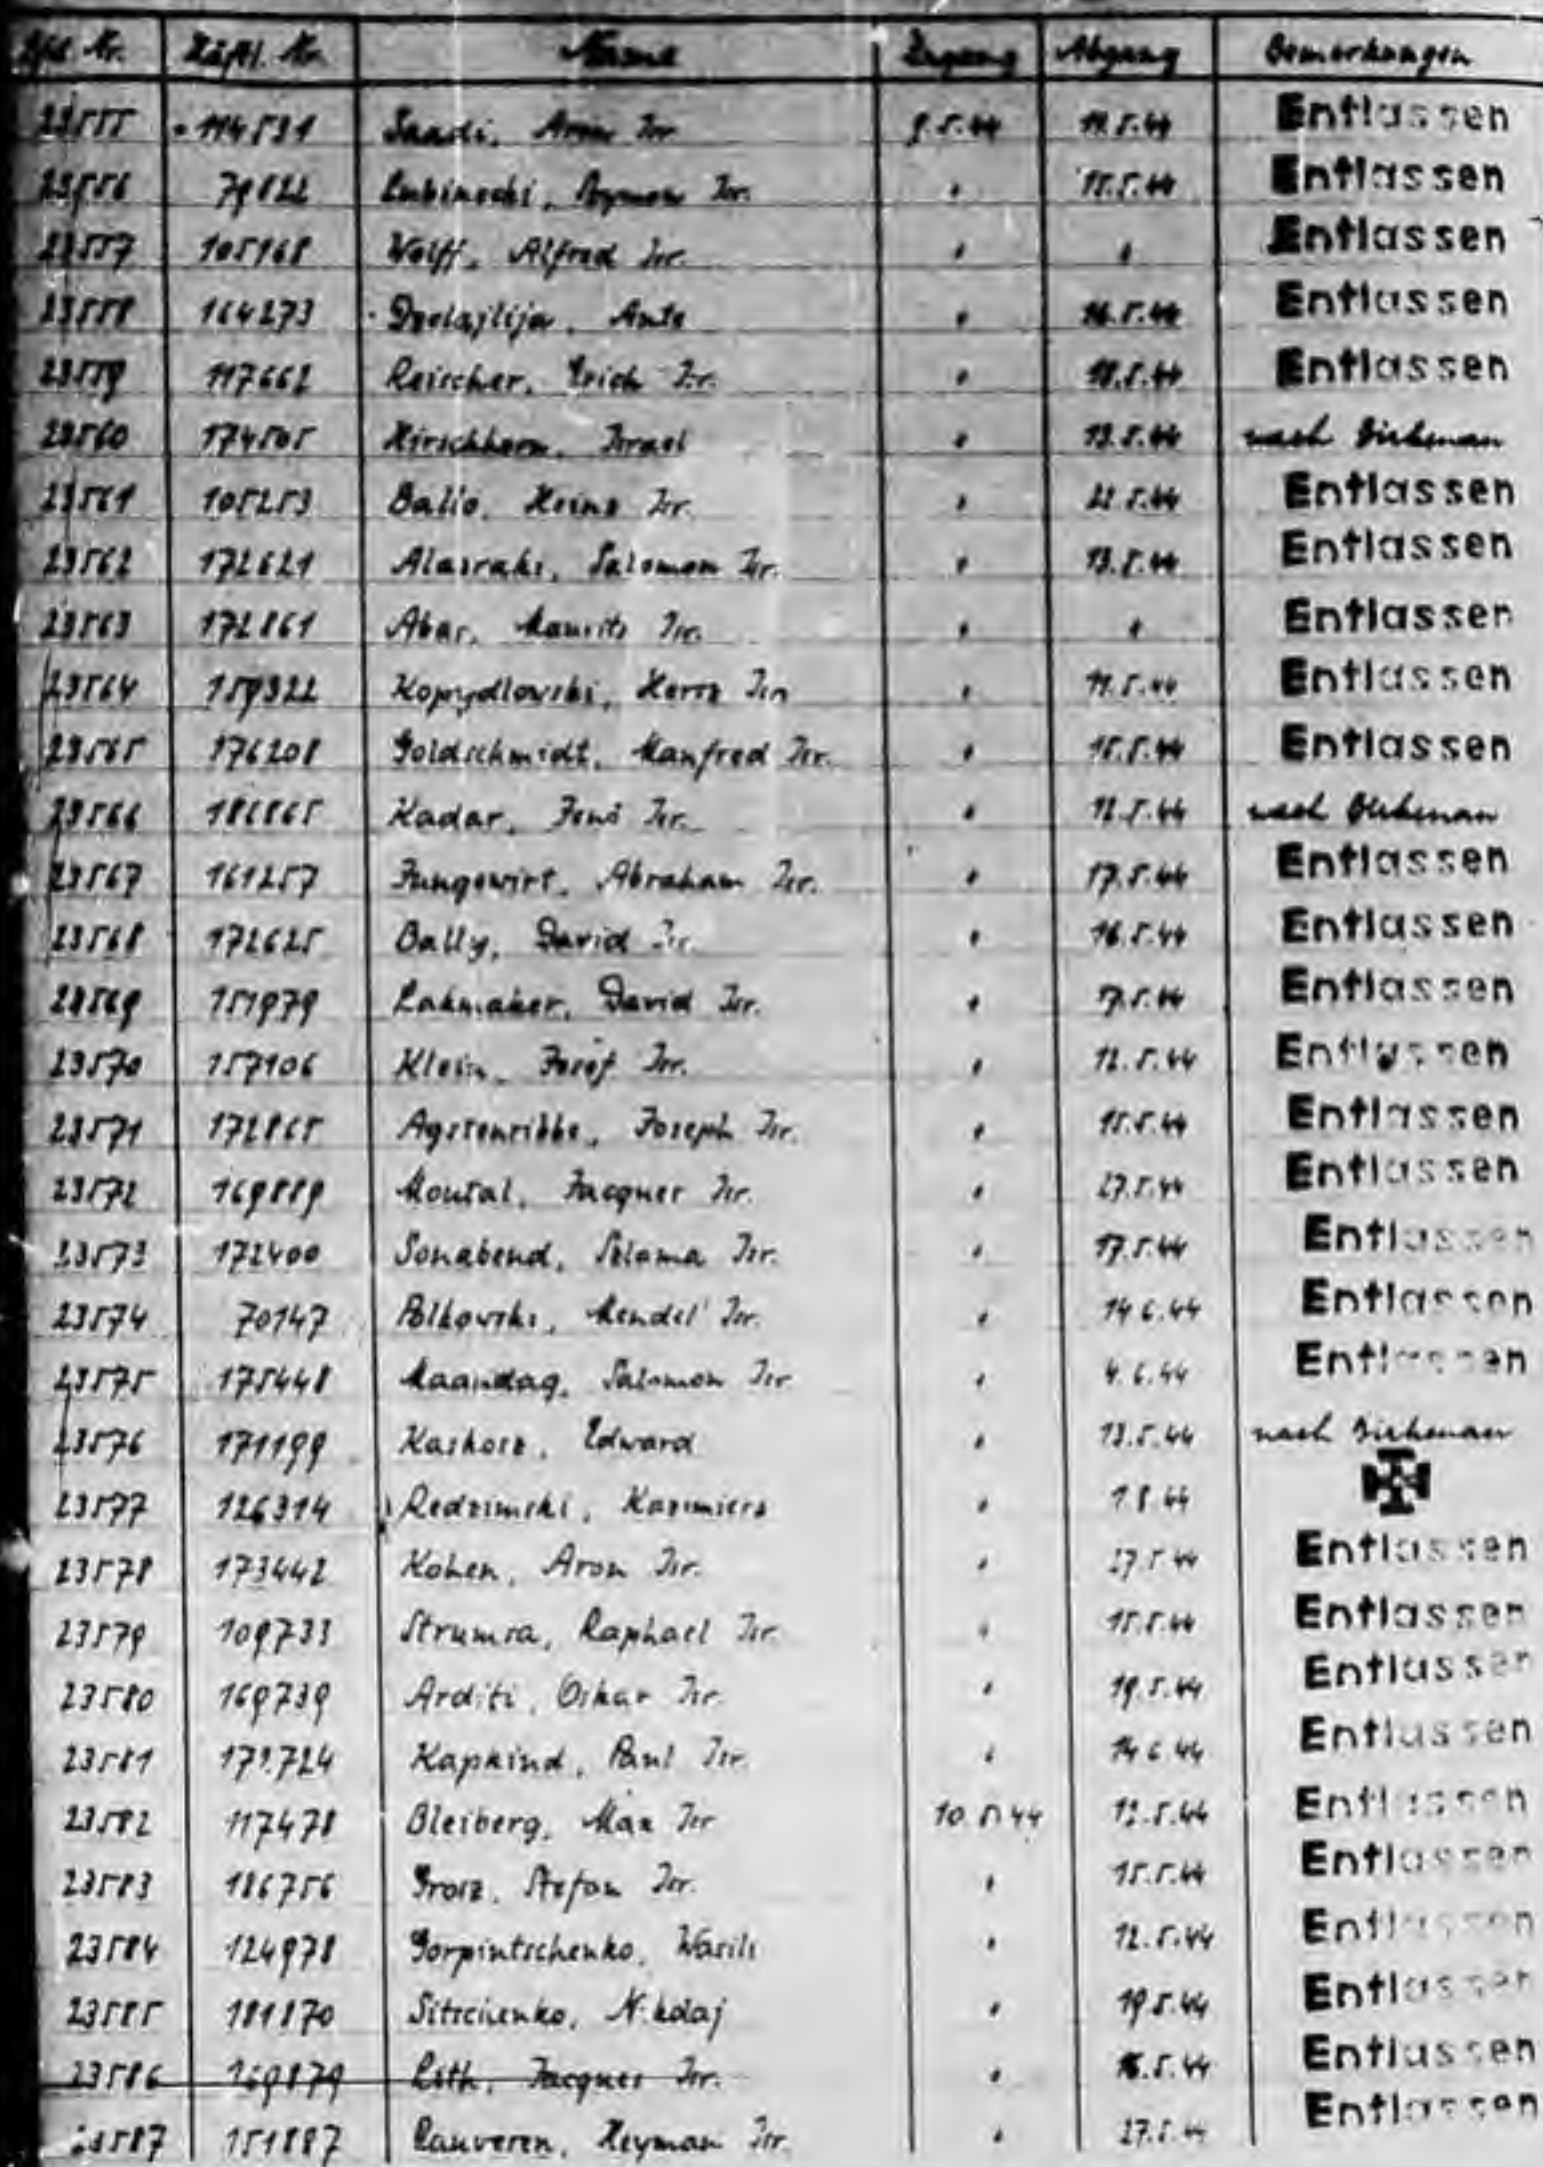 Lfd. Nr. Häftl. Nr. Name Zugang Abgang Bemerkungen
23555 114531 Saadi, Aron Isr. 9.5.44 11.5.44 Entlassen
23556 79822 Isr. " 15.5.44 Entlassen
23557 105168 Wolff, Alfred Isr. " " Entlassen
23558 164273 Ante " 16.5.44 Entlassen
23559 117662 Reischer, Erich Isr. " 18.5.44 Entlassen
23560 174505 Hirschhorn, Israel " 13.5.44 nach Birkenau
23561 105253 Heinz Isr. " 22.5.44 Entlassen
23562 172621 Alasraki, Salomon Isr. " 13.5.44 Entlassen
23563 172861 Abar, Maurits Isr. " " Entlassen
23564 159322 Kopydlowski, Hersz Isr. " 11.5.44 Entlassen
23565 176208 Goldschmidt, Manfred Isr. " 15.5.44 Entlassen
23566 186865 Kadar, Jenö Isr. " 12.5.44 nach Birkenau
23567 161257 Jungewirt, Abraham Isr. " 17.5.44 Entlassen
23568 172625 Bally, David Isr. " 16.5.44 Entlassen
23569 151979 Lakmaker, David Isr. " 17.5.44 Entlassen
23570 157106 Klein, Josef Isr. " 12.5.44 Entlassen
23571 172865 Agstenribbe, Joseph Isr. " 15.5.44 Entlassen
23572 169889 Jacques Isr. " 27.5.44 Entlassen
23573 172400 Sonabend, Szlama Isr. " 17.5.44 Entlassen
23574 70147 Polkowski, Mendel Isr. " 14.6.44 Entlassen
23575 175448 Maandag, Salomon Isr. " 4.6.44 Entlassen
23576 171199 Kaskosz, Edward " 13.5.44 nach Birkenau
23577 126314 Redzimski, Kazimierz " 1.8.44
23578 173442 Kohen, Aron Isr. " 27.5.44 Entlassen
23579 109733 Strumsa, Raphael Isr. " 15.5.44 Entlassen
23580 169739 Arditi, Oskar Isr. " 19.5.44 Entlassen
23581 Kapkind, Paul Isr. " 14.6.44 Entlassen
23582 117478 Bleiberg, Max Isr. 10.5.44 12.5.44 Entlassen
23583 186756 Grosz, Stefan Isr. " 15.5.44 Entlassen
23584 124978 Gorpintschenko, Wasili " 12.5.44 Entlassen
23585 181870 Sitschenko, Nikolaj " 19.5.44 Entlassen
23586 169879 Jacques Isr. " 16.5.44 Entlassen
23587 151887 Lauveren, Heyman Isr. " 27.5.44 Entlassen